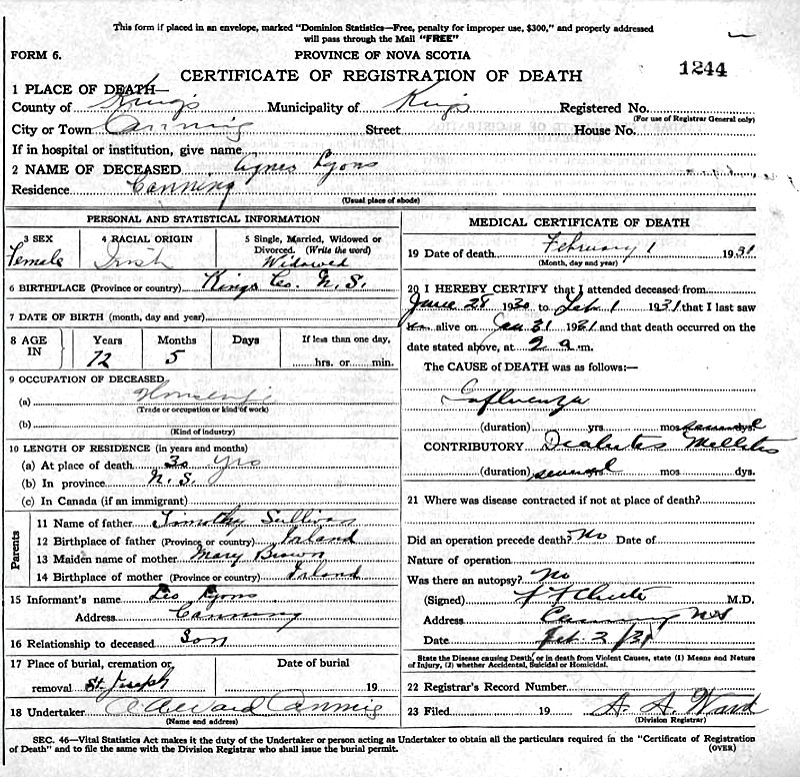 This form if placed in an envelope, marked "Dominion Statistics—Free, penalty for improper use, $300," and properly addressed
will pass through the Mail "FREE"
FORM 6.
PROVINCE OF NOVA SCOTIA
CERTIFICATE OF REGISTRATION OF DEATH
1244
1 PLACE OF DEATH—
County of Kings Municipality of Kings Registered No.
(For use of Registrar General only)
City or Town Canning Street House No.
If in hospital or institution, give name
2 NAME OF DECEASED Agnes Lyons
Residence Canning
(Usual place of abode)
PERSONAL AND STATISTICAL INFORMATION
3 SEX 4 RACIAL ORIGIN 5 Single, Married, Widowed or
Divorced. (Write the word)
Female Irish Widowed
6 BIRTHPLACE (Province or country) Kings Co. N.S.
7 DATE OF BIRTH (month, day and year)
8 AGE IN Years Months Days If less than one day,
72 5 hrs. or min.
9 OCCUPATION OF DECEASED
(a) Housewife
(Trade or occupation or kind of work)
(b)
(Kind of industry)
10 LENGTH OF RESIDENCE (in years and months)
(a) At place of death 30 yrs
(b) In province N.S.
(c) In Canada (if an immigrant)
Parents
11 Name of father Timothy Sullivan
12 Birthplace of father (Province or country) Irland
13 Maiden name of mother Mary Brown
14 Birthplace of mother (Province or country) Irland
15 Informant's name Leo Lyons
Address Canning
16 Relationship to deceased Son
17 Place of burial, cremation or Date of burial
removal St. Joseph 19
18 Undertaker Canning
(Name and address)
MEDICAL CERTIFICATE OF DEATH
19 Date of death February 1 1931
(Month, day and year)
20 I HEREBY CERTIFY that I attended deceased from
June 28 1930 to Feb 1 1931 that I last saw
alive on Jan 31 1931 and that death occurred on
date stated above, at 2 a.m.
The CAUSE of DEATH was as follows:—
Influenza
(duration) yrs mos several dys.
CONTRIBUTORY Diabetes Mellitis
(duration) several mos dys.
21 Where was disease contracted if not at place of death?
Did an operation precede death? No Date of
Nature of operation
Was there an autopsy? No
(Signed) M.D.
Address Canning NS
Date Feb 2/31
State the Disease causing Death, or in death from Violent Causes, state (1) Means and Nature
of Injury, (2) whether Accidental, Suicidal or Homicidal.
22 Registrar's Record Number
23 Filed 19 A. A. Ward
(Division Registrar)
SEC. 46—Vital Statistics Act makes it the duty of the Undertaker or person acting as Undertaker to obtain all the particulars required in the "Certificate of Registration
of Death" and to file the same with the Division Registrar who shall issue the burial permit. (OVER)